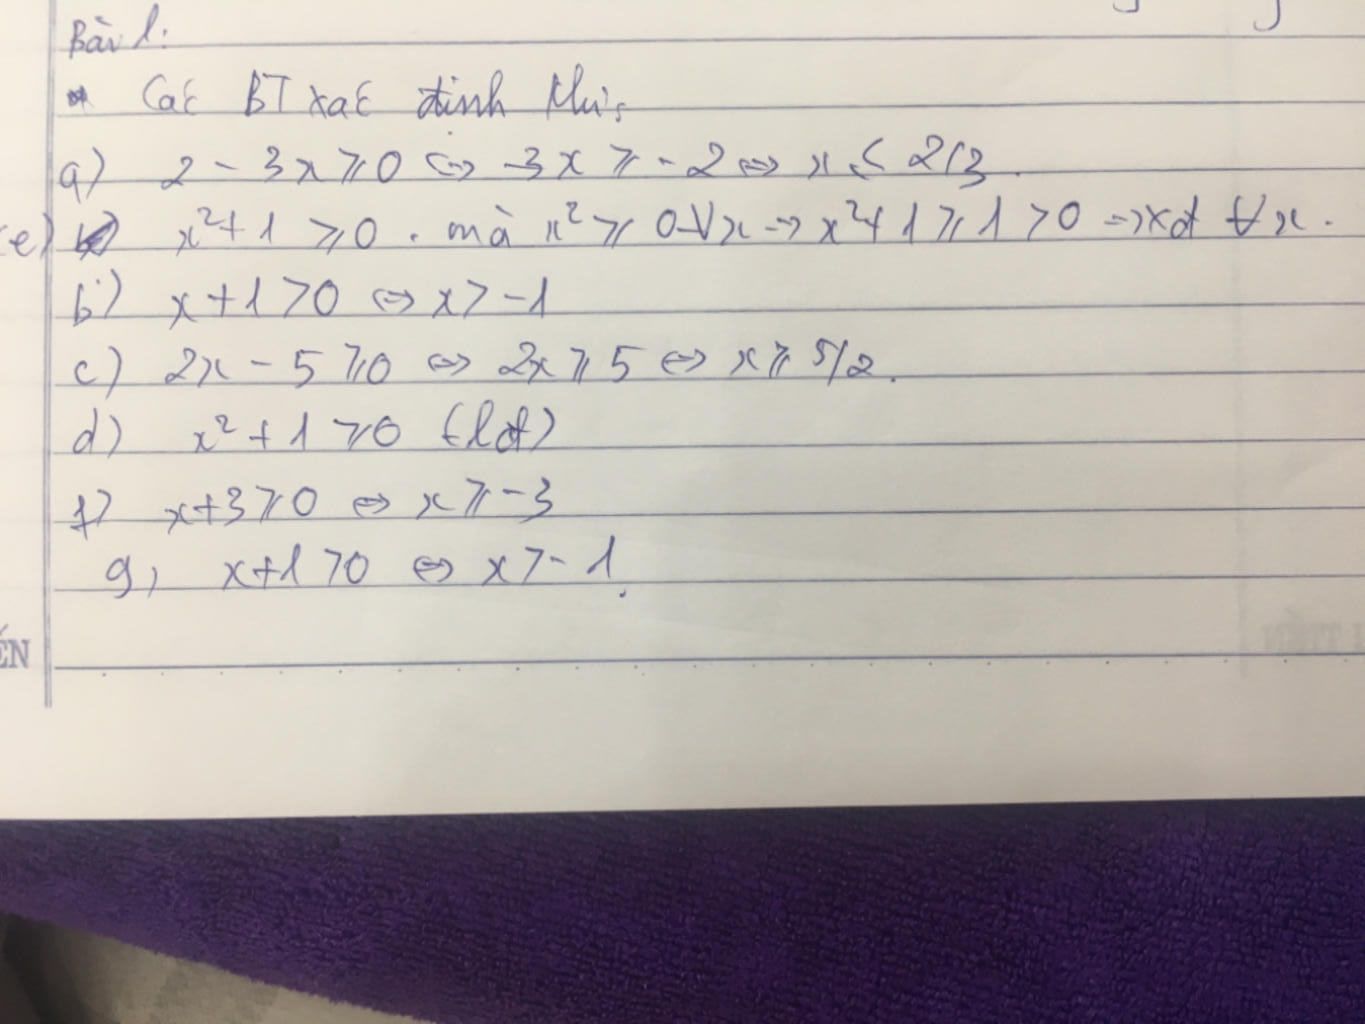 Bài 1:
* Các BT xác định khi:
a) 2 - 3x ⩾ 0 ⇔ -3x ⩾ -2 ⇔ x ⩽ 2/3.
e) x² + 1 ⩾ 0 . mà x² ⩾ 0 ∀x → x² + 1 ⩾ 1 > 0 → xđ ∀x.
b) x + 1 > 0 ⇔ x > -1
c) 2x - 5 ⩾ 0 ⇔ 2x ⩾ 5 ⇔ x ⩾ 5/2.
d) x² + 1 ⩾ 0 (lđ)
f) x + 3 ⩾ 0 ⇔ x ⩾ -3
g, x + 1 > 0 ⇔ x > -1.